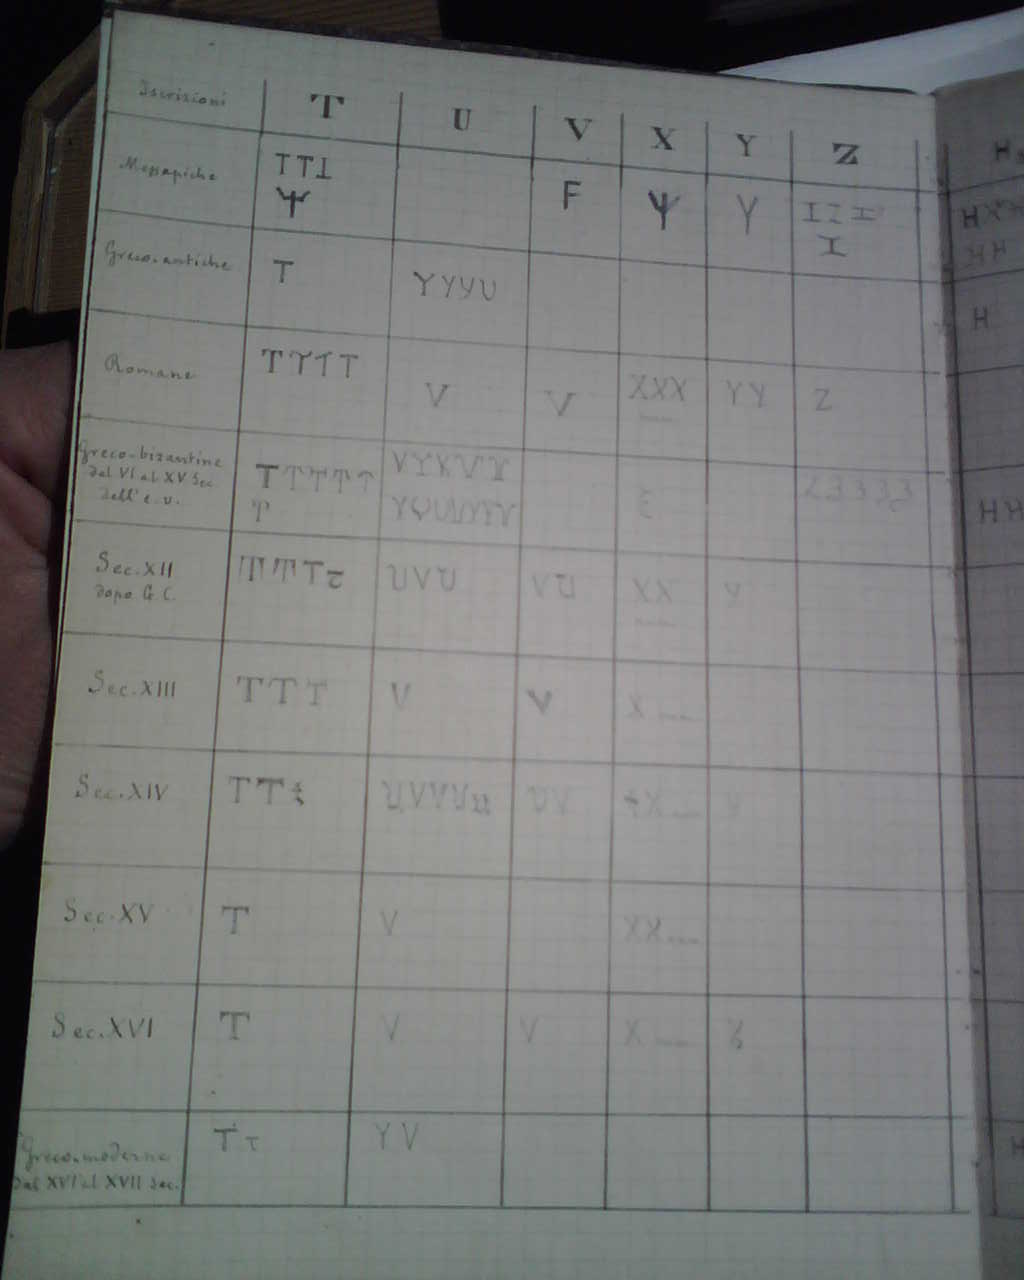 Iscrizioni T U V X Y Z
Messapiche T T ⊥ F Ψ Y I Z I
Ψ I
Greco-antiche T Y Y Y U
Romane T T T T V V X X X Y Y Z
Greco-bizantine
dal VI al XV Sec.
dell'e.v.
T T T T T
T
V Y V Y
ξ
Z 3 3 3 3
Sec. XII T T T τ U V U V U X X y
dopo G. C.
Sec. XIII T T T V V X
Sec. XIV T T U V V U u U V X
Sec. XV T V X X
Sec. XVI T V V X
Greco-moderne T τ Y V
dal XVI al XVII Sec.
H
H X X X
H H
H
H H
H